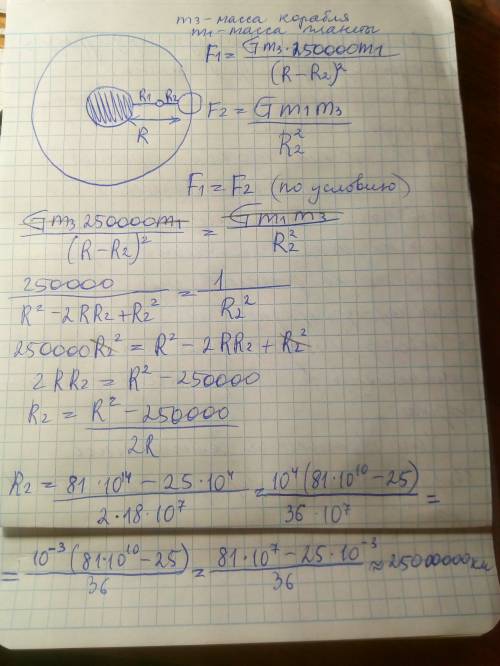 m3 - масса корабля
m1 - масса планеты
F1 = Gm3·250000m1 / (R-R2)²
R1 R2
R
F2 = Gm1m3 / R2²
F1 = F2 (по условию)
Gm3 250000m1 / (R-R2)² = Gm1m3 / R2²
250000 / R²-2RR2+R2² = 1 / R2²
250000R2² = R² - 2RR2 + R2²
2RR2 = R² - 250000
R2 = R² - 250000 / 2R
R2 = 81·10¹⁴ - 25·10⁴ / 2·18·10⁷ = 10⁴(81·10¹⁰-25) / 36·10⁷ =
= 10⁻³(81·10¹⁰-25) / 36 = 81·10⁷-25·10⁻³ / 36 ≈ 25000000км